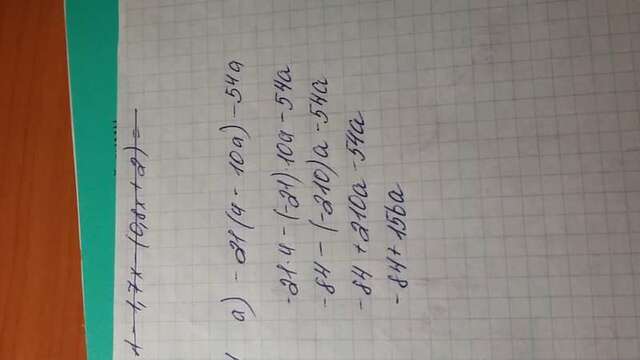 - 1,7x - (0,8x + 2) =
а) - 21(4 - 10a) - 54a
-21·4 - (-21)·10a - 54a
-84 - (-210)a - 54a
-84 + 210a - 54a
-84 + 156a